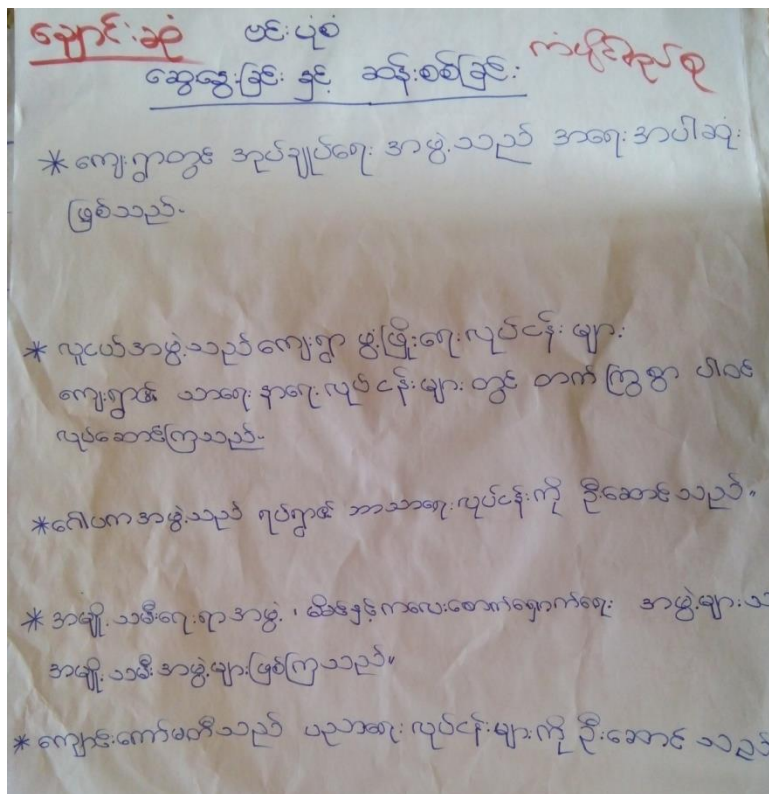 ချောင်းဆုံ ဗင်းပုံစံ ကံပိုင်ဆုပ်စု
ဆွေးနွေးခြင်း နှင့် ဆန်းစစ်ခြင်း
* ကျေးရွာတွင် အုပ်ချုပ်ရေး အဖွဲ့သည် အရေးအပါဆုံး
ဖြစ်သည်။
* လူငယ်အဖွဲ့သည် ကျေးရွာ ဖွံ့ဖြိုးရေးလုပ်ငန်းများ
ကျေးရွာ၏ သာရေးနာရေးလုပ်ငန်းများတွင် တက်ကြွစွာ ပါဝင်
လုပ်ဆောင်ကြသည်။
* ဂေါပကအဖွဲ့သည် ရပ်ရွာ၏ ဘာသာရေးလုပ်ငန်းကို ဦးဆောင်သည်။
* အမျိုးသမီးရေးရာအဖွဲ့၊ မိခင်နှင့်ကလေးစောင့်ရှောက်ရေး အဖွဲ့များသ
အမျိုးသမီးအဖွဲ့များဖြစ်ကြသည်။
* ကျောင်းကော်မတီသည် ပညာရေးလုပ်ငန်းများကို ဦးဆောင်သည်